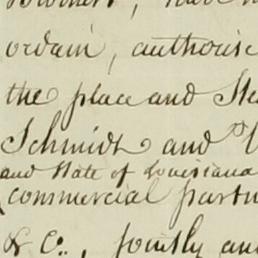 ordain, authorise
the place and Ste
Schmidt and
and State of Louisiana
commercial partn
& Co., jointly and